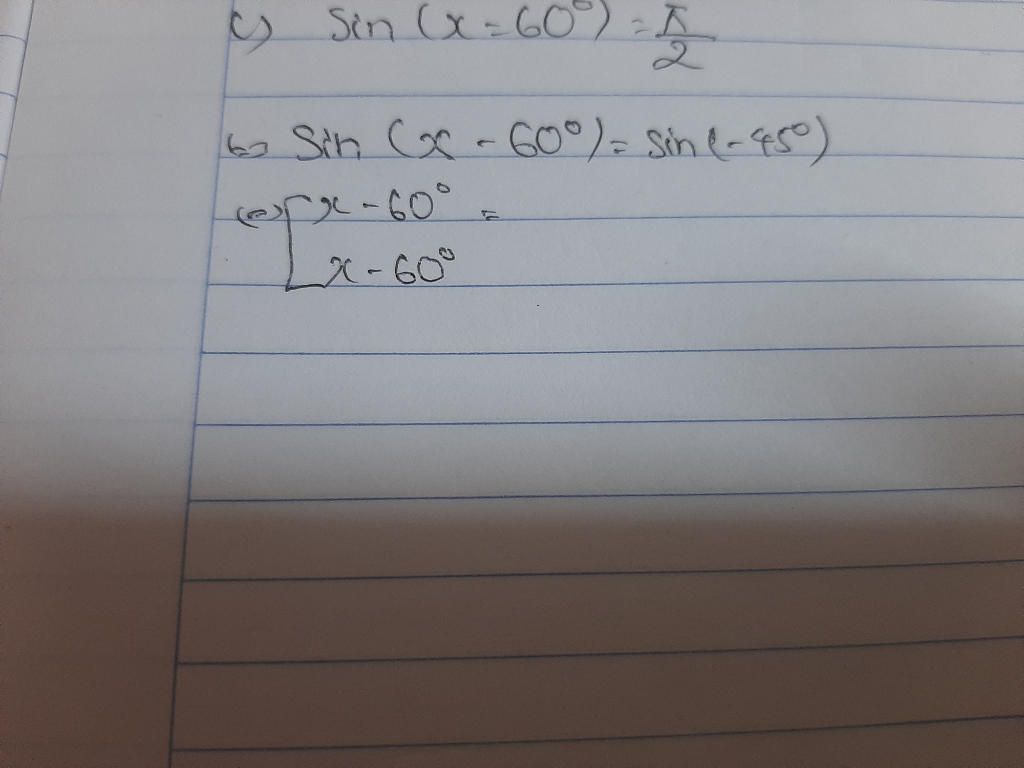 c) Sin (x - 60°) = π/2
<=> Sin (x - 60°) = sin(-45°)
<=> [ x - 60° =
x - 60°